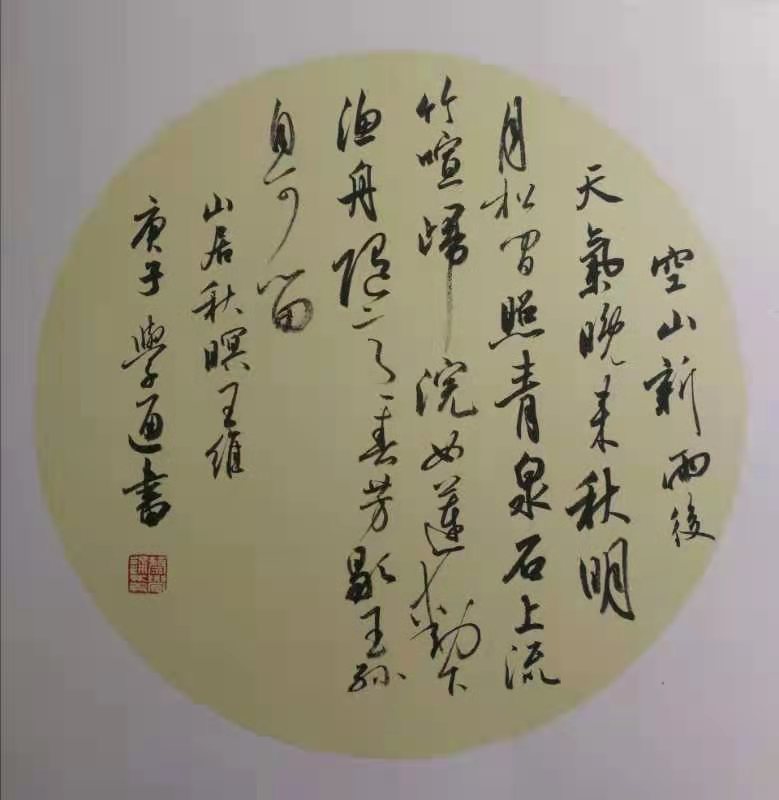 空山新雨後
天氣晚来秋明
月松間照青泉石上流
竹喧歸浣女蓮動下
漁舟随意春芳歇王孫
自可留
山居秋暝王維
庚子學通書